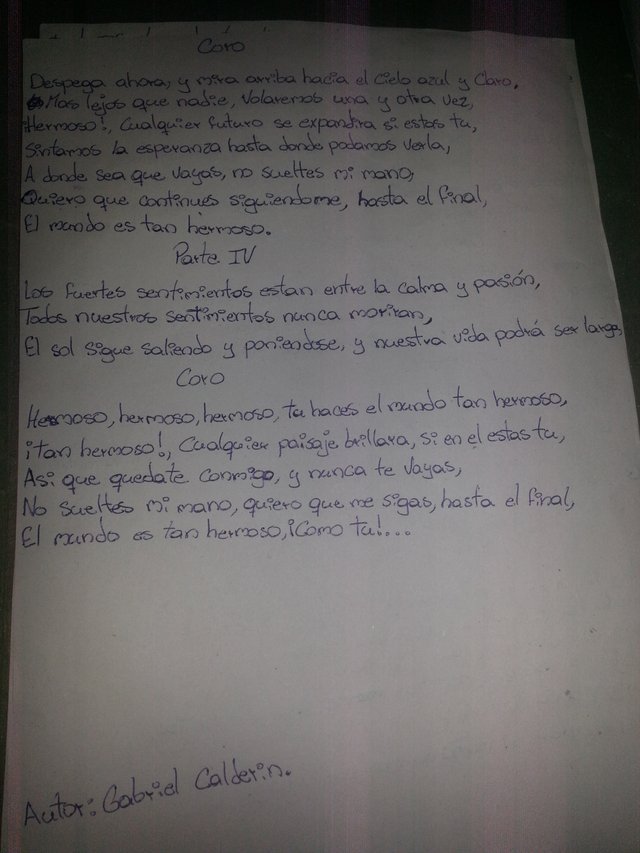 Coro
Despega ahora, y mira arriba hacia el Cielo azul y Claro,
Mas lejos que nadie, Volaremos una y otra vez,
¡Hermoso!, Cualquier futuro se expandira si estas tu,
Sintamos la esperanza hasta donde podamos verla,
A donde sea que vayas, no sueltes mi mano,
Quiero que continues siguiendome, hasta el final,
El mundo es tan hermoso.
Parte IV
Los fuertes sentimientos estan entre la calma y pasión,
Todos nuestros sentimientos nunca moriran,
El sol sigue saliendo y poniendose, y nuestra vida podrá ser larga,
Coro
Hermoso, hermoso, hermoso, tu haces el mundo tan hermoso,
¡tan hermoso!, Cualquier paisaje brillara, si en el estas tu,
Asi que quedate conmigo, y nunca te vayas,
No sueltes mi mano, quiero que me sigas, hasta el final,
El mundo es tan hermoso, ¡Como tu!...
Autor: Gabriel Calderin.